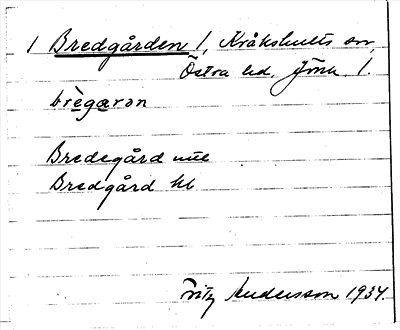 1 Bredgården 1, Kråkshults sn,
Östra hd. Jönk. l.
brègæron
Bredegård
Bredgård hk
Fritz Andersson 1934.